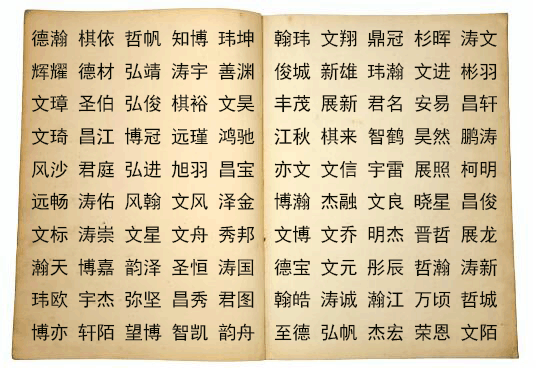 德瀚 棋依 哲帆 知博 玮坤
辉耀 德材 弘靖 涛宇 善渊
文璋 圣伯 弘俊 棋裕 文昊
文琦 昌江 博冠 远瑾 鸿驰
风沙 君庭 弘进 旭羽 昌宝
远畅 涛佑 风翰 文风 泽金
文标 涛崇 文星 文舟 秀邦
瀚天 博嘉 韵泽 圣恒 涛国
玮欧 宇杰 弥坚 昌秀 君图
博亦 轩陌 望博 智凯 韵舟
翰玮 文翔 鼎冠 杉晖 涛文
俊城 新雄 玮瀚 文进 彬羽
丰茂 展新 君名 安易 昌轩
江秋 棋来 智鹤 昊然 鹏涛
亦文 文信 宇雷 展照 柯明
博瀚 杰融 文良 晓星 昌俊
文博 文乔 明杰 晋哲 展龙
德宝 文元 彤辰 哲瀚 涛新
翰皓 涛诚 瀚江 万顷 哲城
至德 弘帆 杰宏 荣恩 文陌